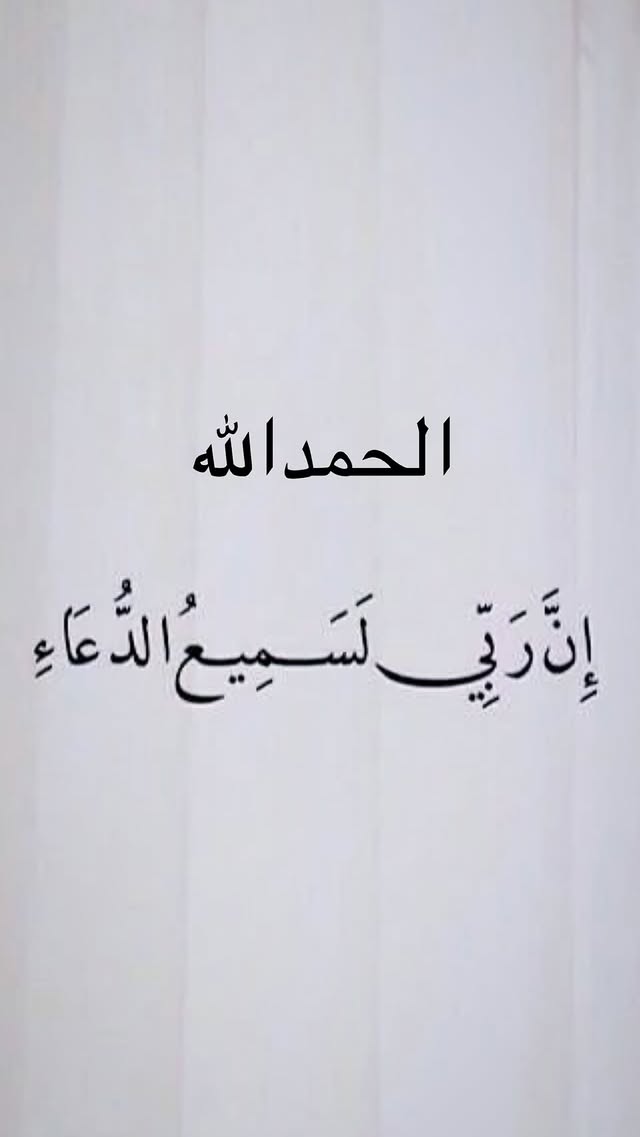 الحمدالله
إِنَّ رَبِّي لَسَمِيعُ الدُّعَاءِ